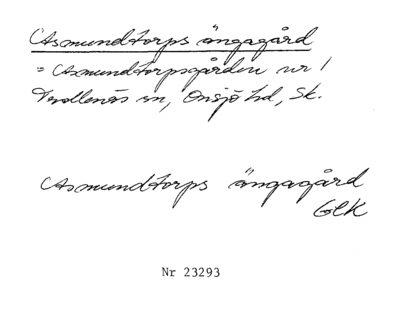 Asmundtorps ängagård
= Asmundtorpsgården nr 1
Trollenäs sn, Onsjö hd, Sk.
Asmundtorps ängagård
GEK
Nr 23293